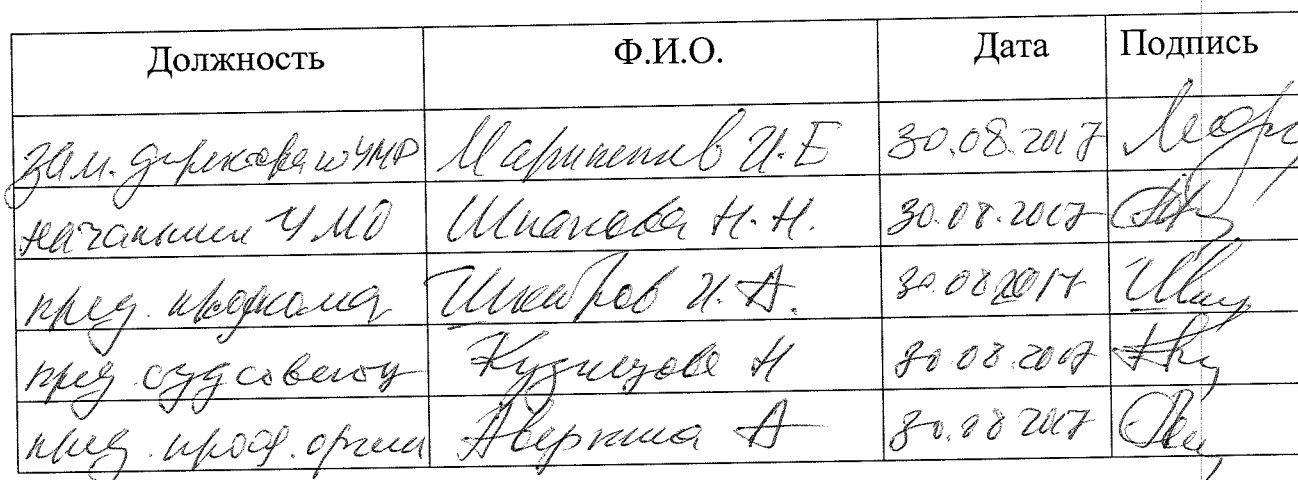 Должность Ф.И.О. Дата Подпись
зам. директора по УМР И.Е 30.08.2017
начальник УМО Шпакова Н.Н. 30.08.2017
пред. профкома Шкабров И.А. 30.08.2017
пред студсовета Кузнецова Н 30.08.2017
пред. проф. орган А 30.08.2017